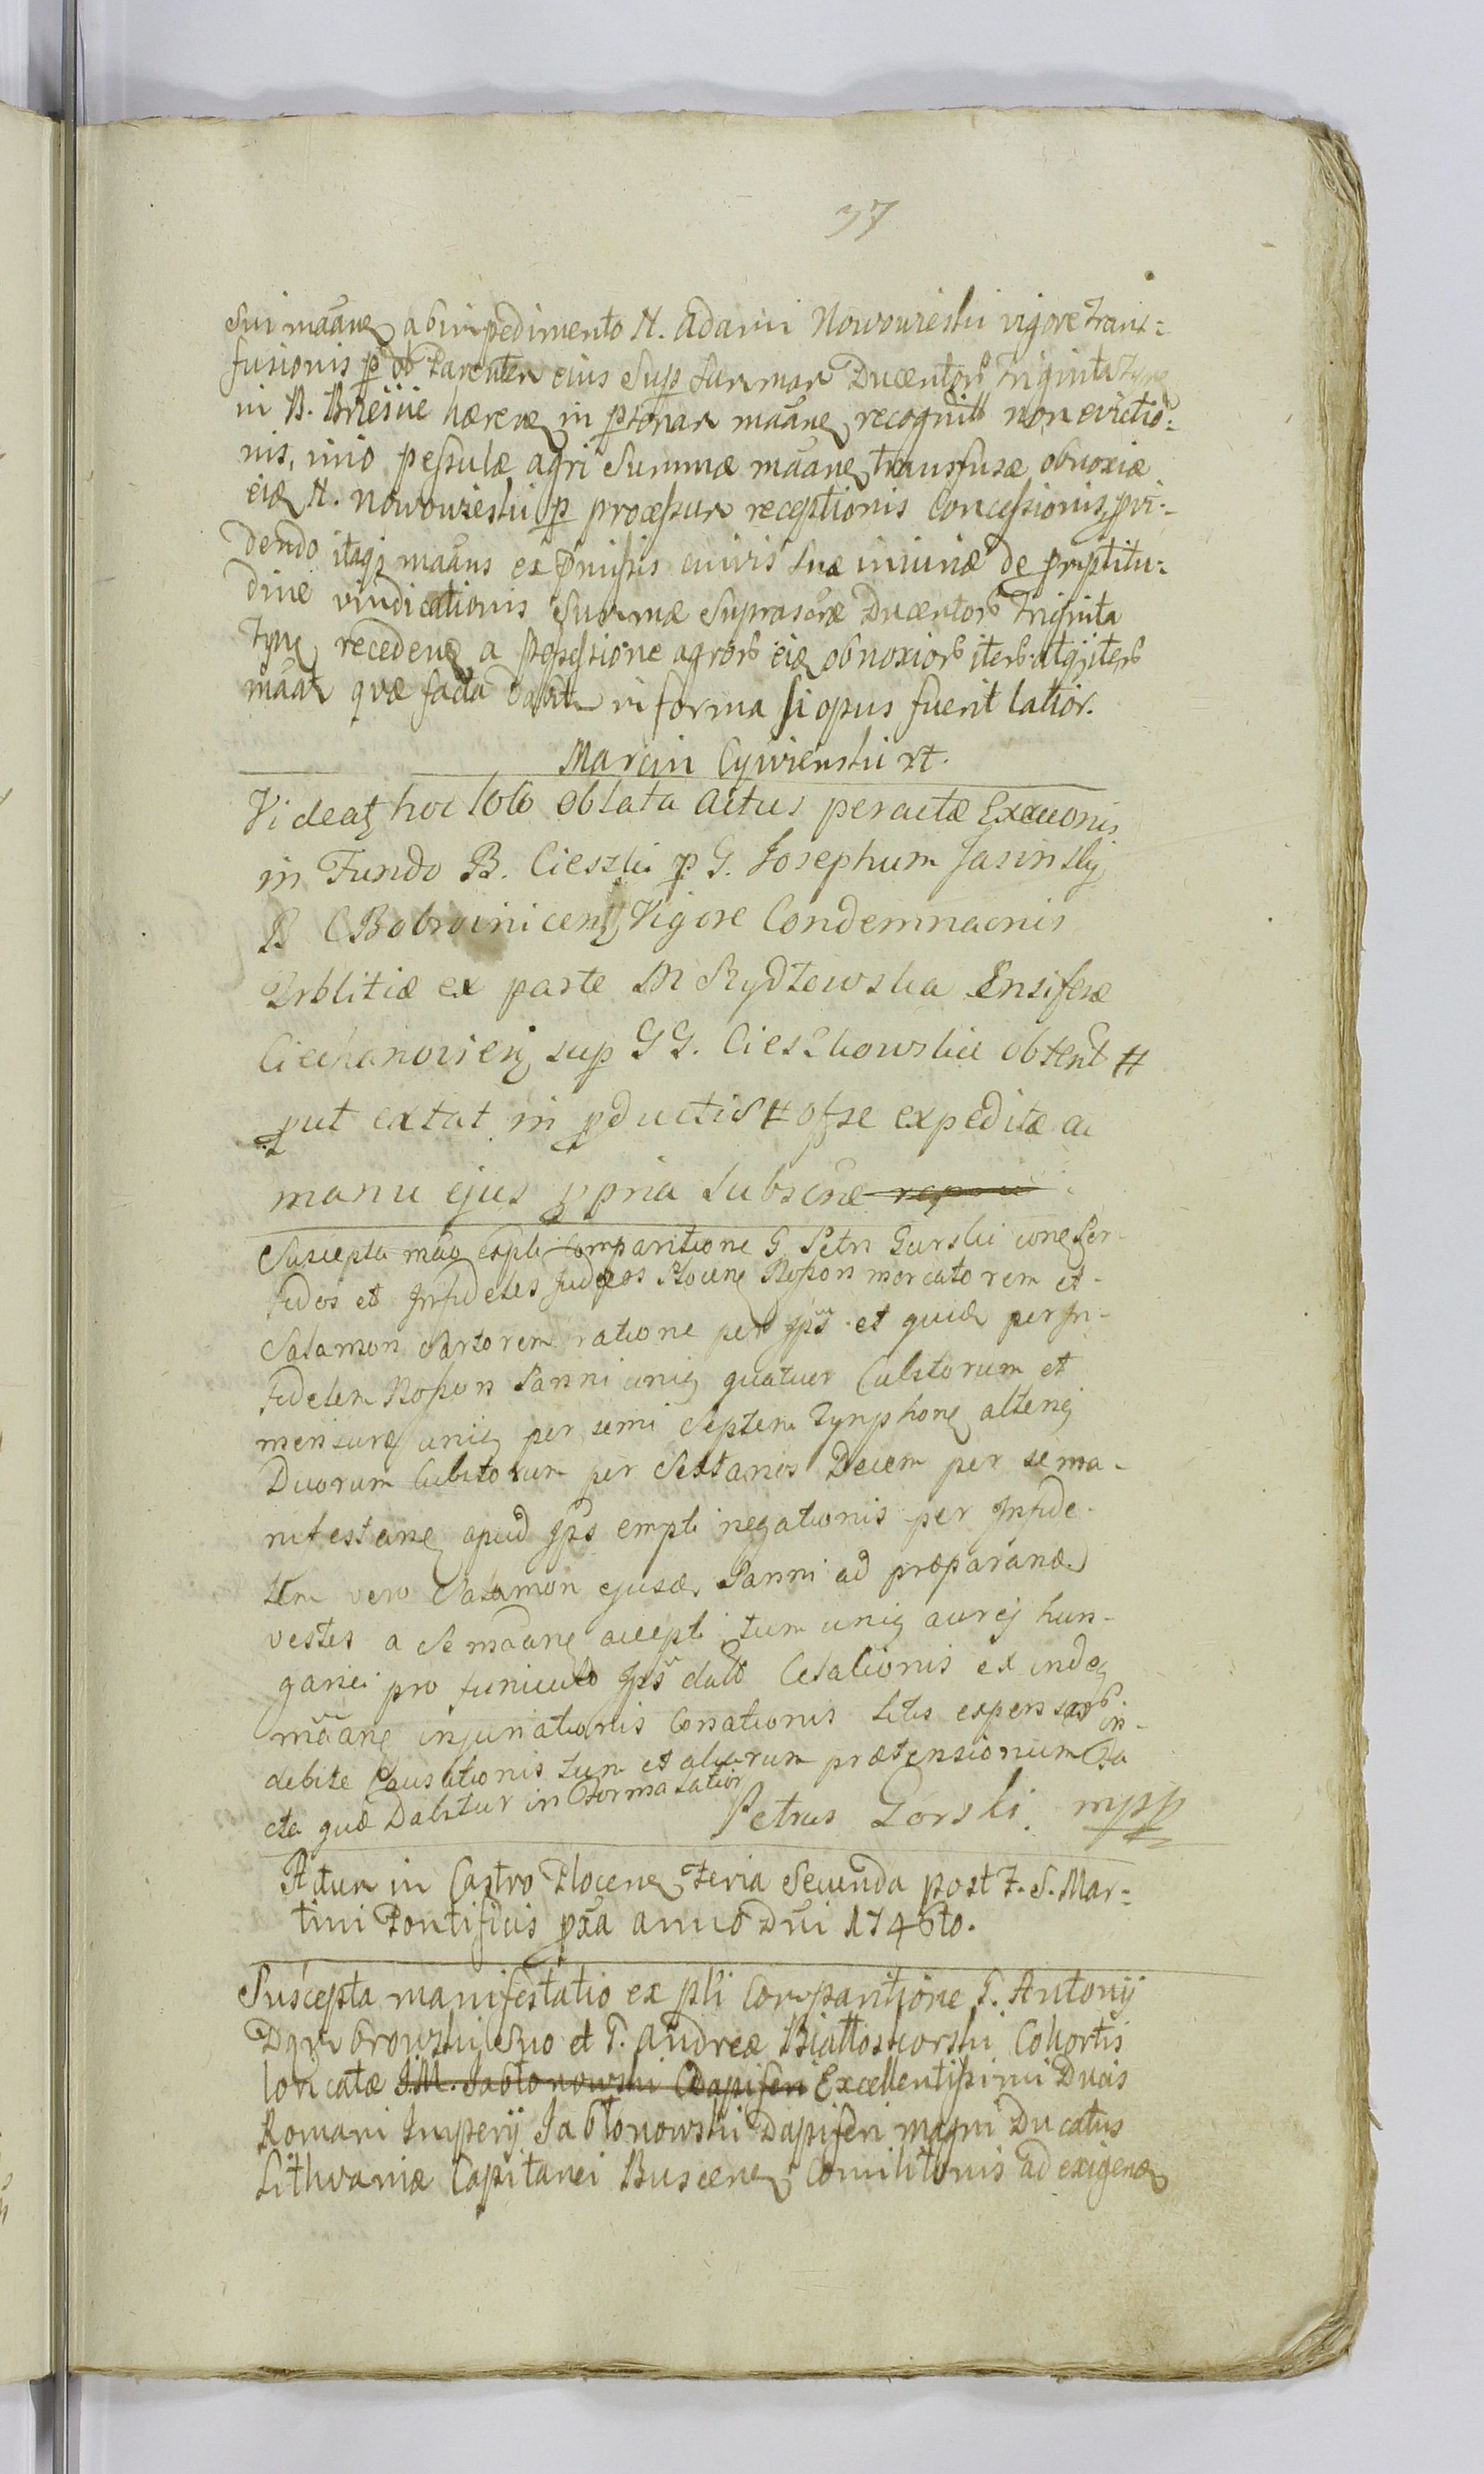 37
sui māane ab impedimento N. Adami Nowowieski vigore Trans=
fusionis p ob Parentem eius Sup Summam Ducentor Triginta Tyne
in B. Brieśiie hærene in pſonam māane recognit non evictio=
nis, imo peſsulæ agri Summæ māane transfusæ obnoxiæ
eid N. Nowowieski p proceſsum receptionis Conceſsionis, pvi=
dendo itaq māans ex pmiſsis cuivis suæ iniuriæ de promptitu=
dine vindicationis Summæ Suprascræ Ducentor Triginta
Tyne recedene a poſseſsione agror eid obnoxior iter atq iter
māat qvæ facta dabitur in forma si opus fuerit latior.
Marcin Cywienski rt.
Videat hoc loco oblata actus peractæ Exæcuonis
in Fundo B. Cieszki p G. Josephum Jasinsky
B C Bobrowinicens Vigore Condemnaonis
Trblitiæ ex parte M Rydzewska Ensiferæ
Ciechanovien sup GG. Cieszkowskie obtent #
put extat in pductis # ofse expeditæ ac
manu ejus ppria Subscræ
Suscepta mão expli Comparitione G Petri Gurski cone Per-
fidos et Infideles Judæos Plocene Nopon mercatorem et
Salamon Sartorem ratione per Ips et quid per In-
fidelem Nopon Panni uniq quatuor Cubitorum et
mensure uniq per semi Septem Tynphone alteriq
Duorum Cubitorum per Sextanos Decem per se ma-
nifestane apud Ips empti negationis per Infide-
lem vero Salamon ejusd Panni ad præparand
vestes a se māane accepti tum uniq aurej hun-
garici pro funiculo Ips dato Celationis ex inde
māane injuriationis Consationis litis expensar in-
debite Causationis tum et aliarum prætensionum Fa
cta quæ Dabitur in Forma Latiori
Petrus Gorski. mpp
Actum in Castro Plocene Feria Secunda post F. S. Mar=
tini Pontificis pxa anno Dni 1746to.
Suscepta manifestatio ex pli Comparitione G. Antonij
Dąmbrowski Suo et G. Andreæ Białłoskorski Cohortis
loricatæ I.M. Jabłonowski Dapiferi Excellentiſsimi Ducis
Romani Imperij Jabłonowski Dapiferi magni Ducatus
Lithvaniæ Capitanei Buscene Comilitonis ad exigene